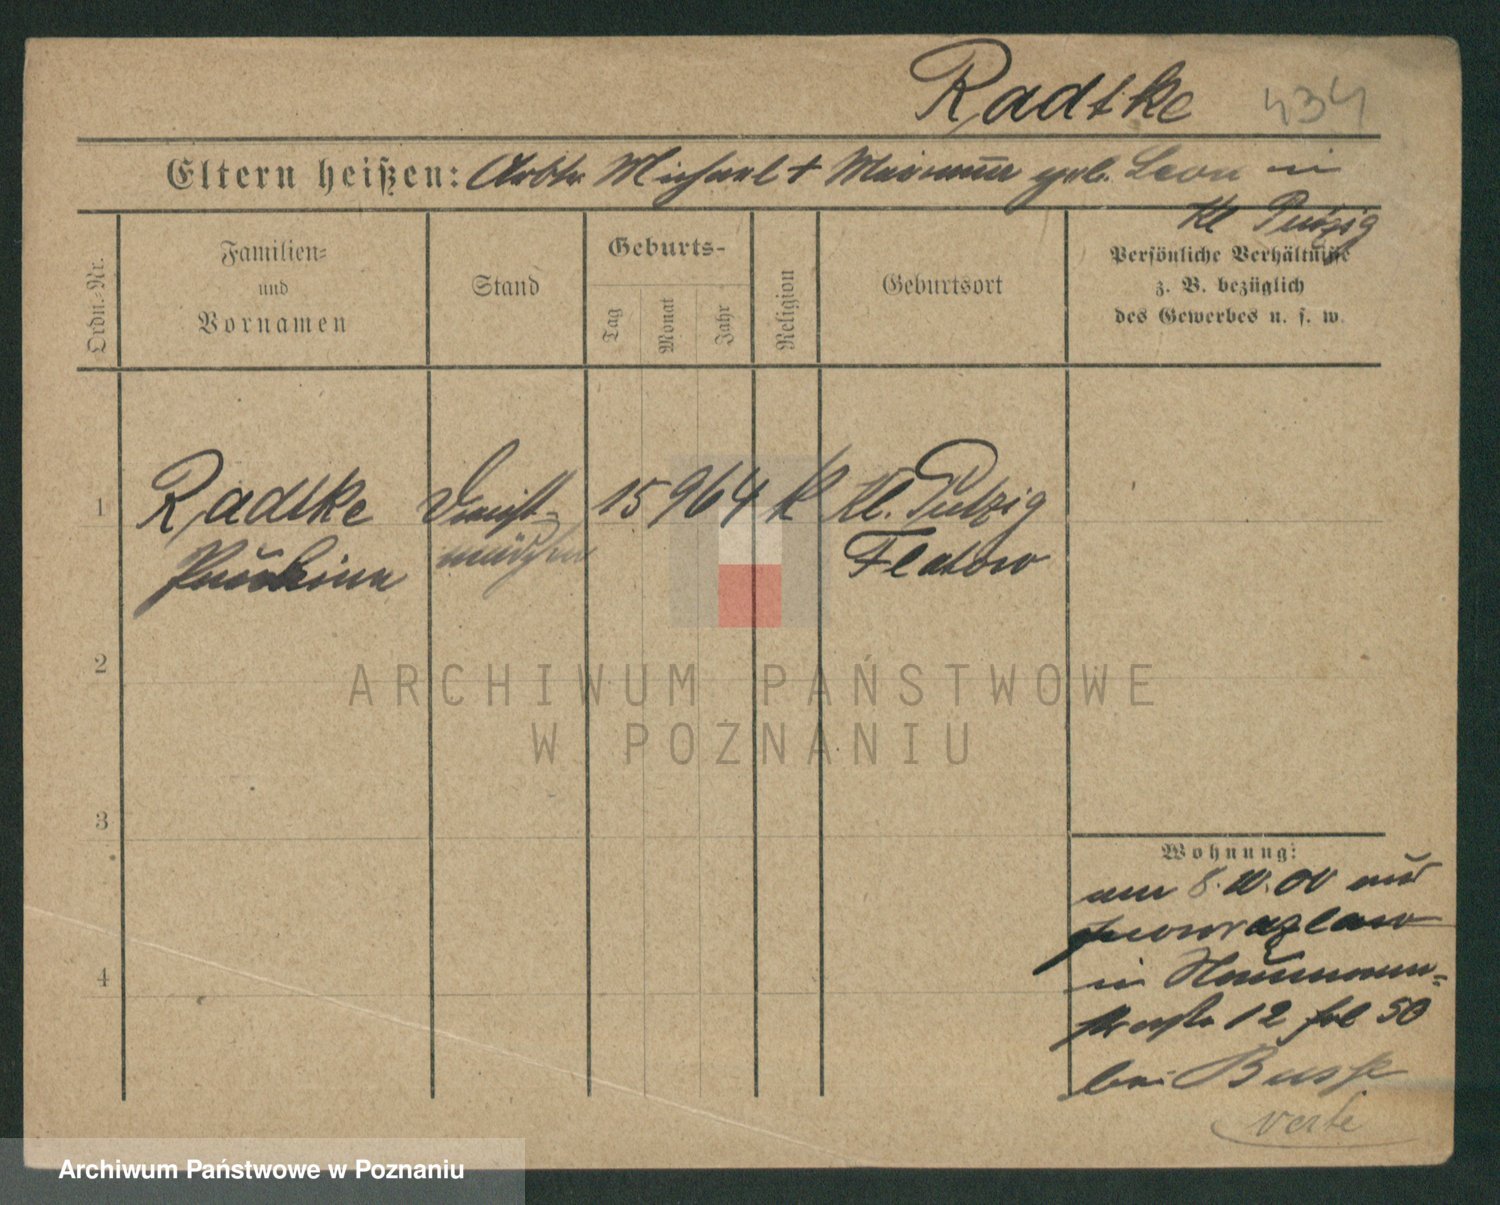 Radtke 434
Eltern heißen: Arbtr. Michael + Marianne geb. Leon in
Kl Putzig
Ordn.-Nr.
Familien-
und
Vornamen
Stand
Geburts-
Tag
Monat
Jahr
Religion
Geburtsort
Persönliche Verhältnisse
z. B. bezüglich
des Gewerbes u. s. w.
1
Radtke Dienst- 15 9 64 K Kl. Putzig
Paulina mädchen Flatow
2
ARCHIWUM PAŃSTWOWE
W POZNANIU
3
Wohnung:
am 8.10.00 aus
Inowrazlaw
in Naumann-
straße 12 fol 50
bei Busse
4
verte
Archiwum Państwowe w Poznaniu